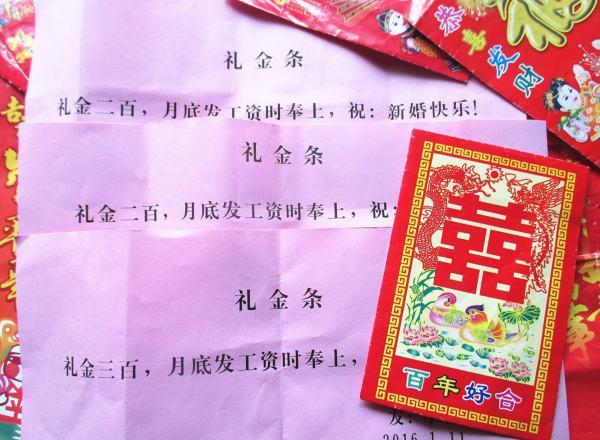 恭喜发财
礼金条
礼金二百，月底发工资时奉上，祝：新婚快乐！
礼金条
礼金二百，月底发工资时奉上，祝：
礼金条
礼金三百，月底发工资时奉上，
囍
百年好合
友：
2016.1.11